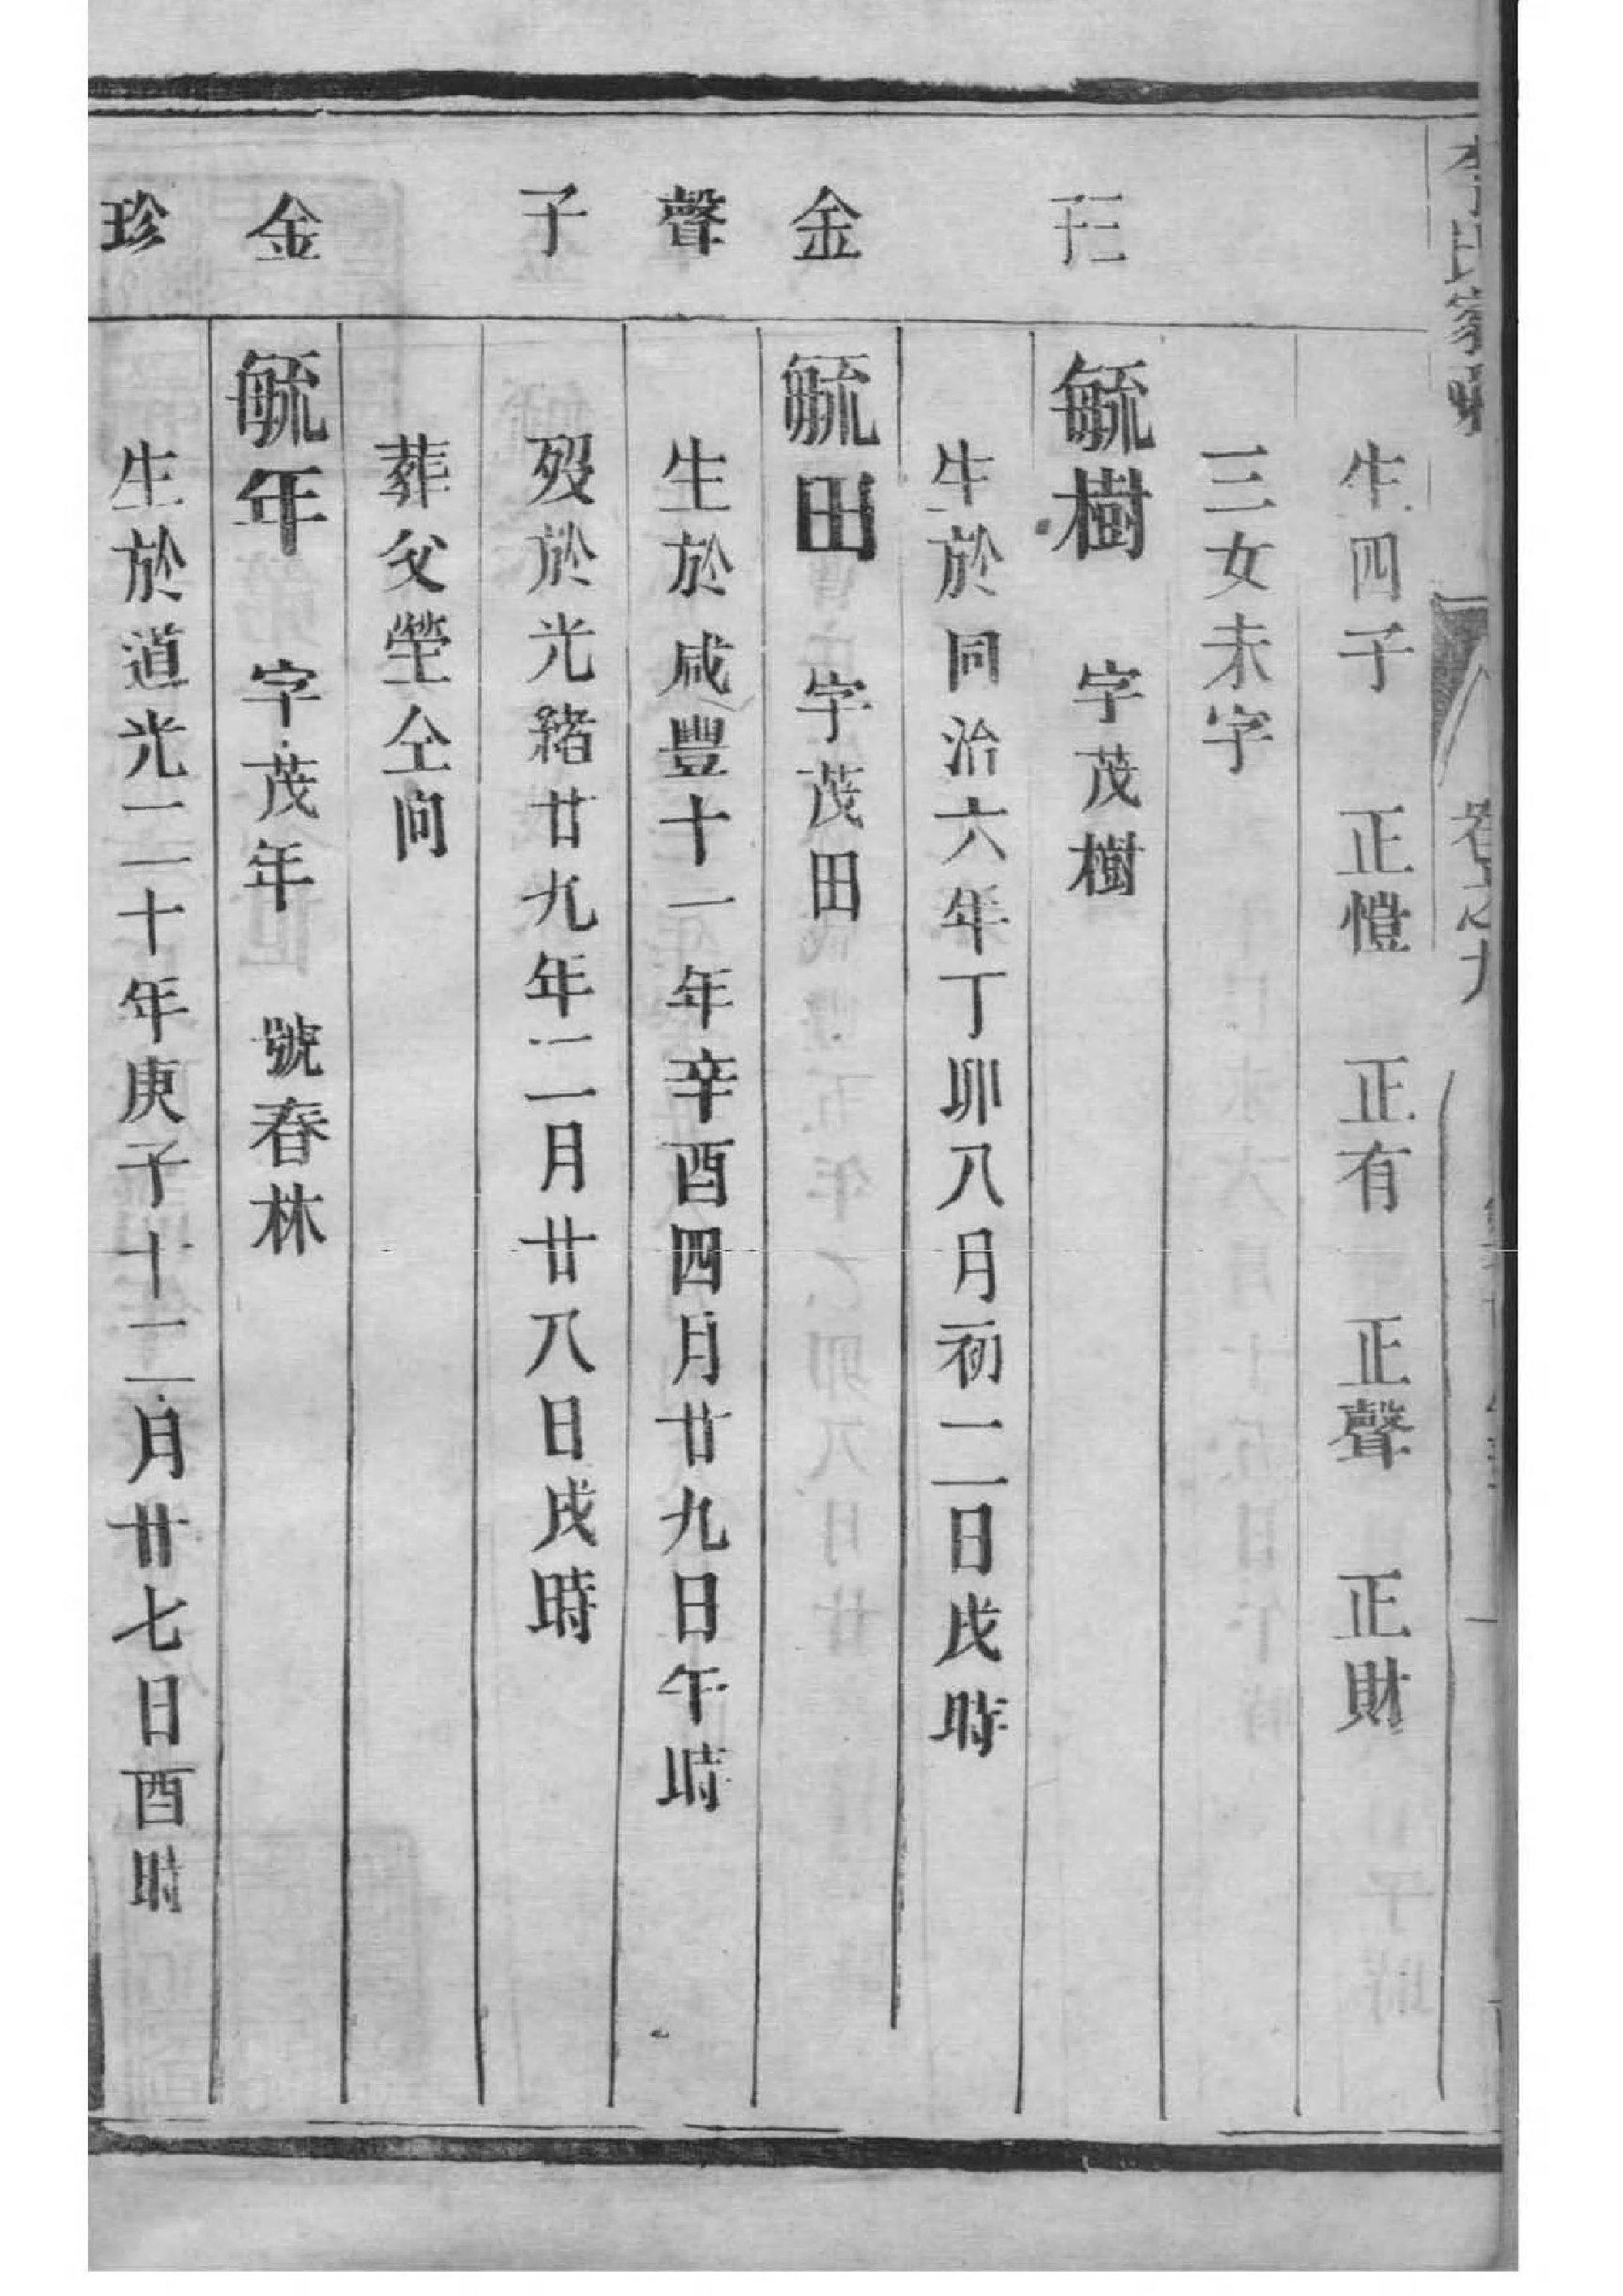 生四子　正愷　正有　正聲　正財
三女未字
子三
毓樹　字茂樹
生於同治六年丁卯八月初二日戌時
金
毓田　字茂田
聲
生於咸豐十一年辛酉四月廿九日午時
子
歿於光緒廿九年二月廿八日戌時
葬父塋仝向
金
毓年　字茂年　號春林
珍
生於道光二十年庚子十二月廿七日酉時